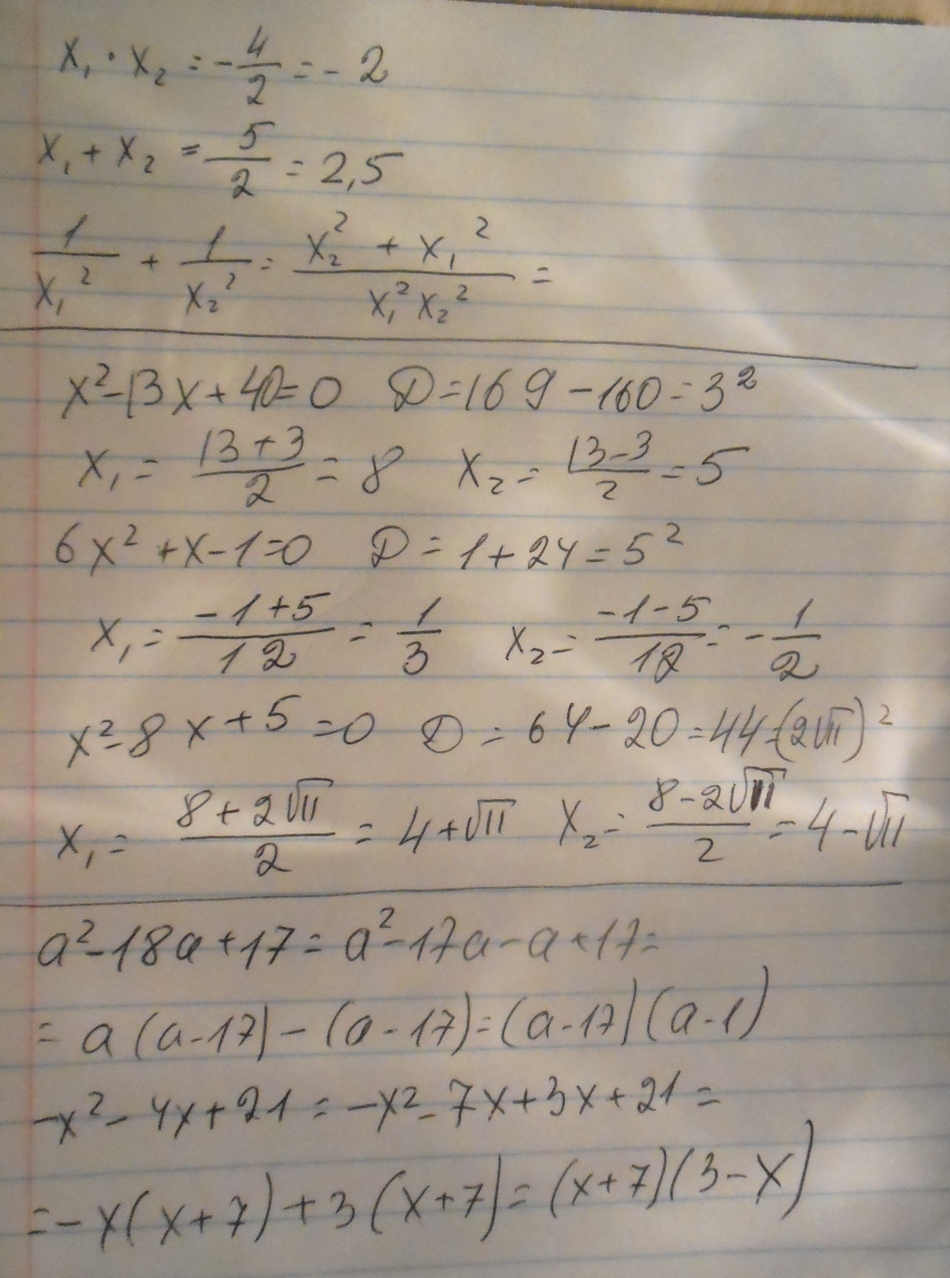 x₁ · x₂ = -4/2 = -2
x₁ + x₂ = 5/2 = 2,5
1/x₁² + 1/x₂² = (x₂² + x₁²)/(x₁² x₂²) =
x²-13x+40=0 D=169-160=3²
x₁ = (13+3)/2 = 8 x₂ = (13-3)/2 = 5
6x²+x-1=0 D=1+24=5²
x₁ = (-1+5)/12 = 1/3 x₂ = (-1-5)/12 = -1/2
x²-8x+5=0 D=64-20=44=(2√11)²
x₁ = (8+2√11)/2 = 4+√11 x₂ = (8-2√11)/2 = 4-√11
a²-18a+17=a²-17a-a+17=
=a(a-17)-(a-17)=(a-17)(a-1)
-x²-4x+21=-x²-7x+3x+21=
=-x(x+7)+3(x+7)=(x+7)(3-x)